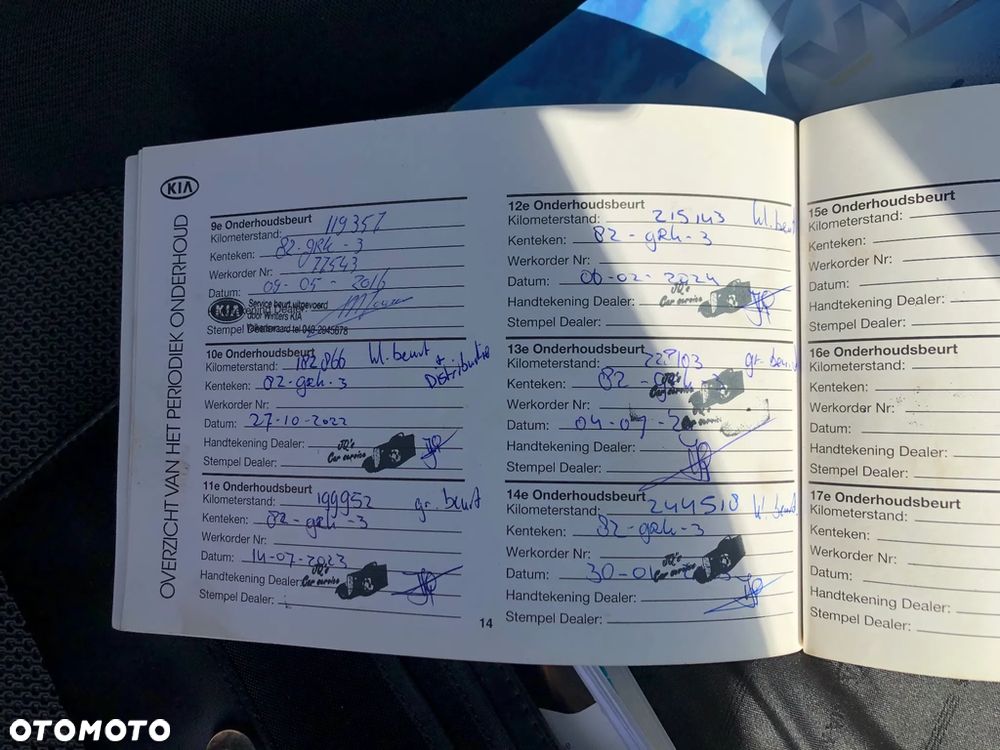 KIA
OVERZICHT VAN HET PERIODIEK ONDERHOUD
9e Onderhoudsbeurt
Kilometerstand: 119357
Kenteken: 82-grh-3
Werkorder Nr: 77543
Datum: 09-05-2016
Handtekening Dealer:
Stempel Dealer:
KIA
Service beurt uitgevoerd
door Winters KIA
10e Onderhoudsbeurt
Kilometerstand: 182866 kl. beurt + Distributie
Kenteken: 82-grh-3
Werkorder Nr:
Datum: 27-10-2022
Handtekening Dealer:
JQ's
Car service
Stempel Dealer:
11e Onderhoudsbeurt
Kilometerstand: 199952 gr. beurt
Kenteken: 82-grh-3
Werkorder Nr:
Datum: 14-07-2023
Handtekening Dealer:
JQ's
Car service
Stempel Dealer:
14
12e Onderhoudsbeurt
Kilometerstand: 215143 kl. beurt
Kenteken: 82-grh-3
Werkorder Nr:
Datum: 06-02-2024
Handtekening Dealer:
JQ's
Car service
Stempel Dealer:
13e Onderhoudsbeurt
Kilometerstand: gr. beurt
Kenteken: 82-grh-3
JQ's
Car service
Werkorder Nr:
Datum:
Car service
Handtekening Dealer:
Stempel Dealer:
14e Onderhoudsbeurt
Kilometerstand: 244518 kl. beurt
Kenteken: 82-grh-3
Werkorder Nr:
Datum: 30-
JQ's
Car service
Handtekening Dealer:
Stempel Dealer:
15e Onderhoudsbeurt
Kilometerstand:
Kenteken:
Werkorder Nr:
Datum:
Handtekening Dealer:
Stempel Dealer:
16e Onderhoudsbeurt
Kilometerstand:
Kenteken:
Werkorder Nr:
Datum:
Handtekening Dealer:
Stempel Dealer:
17e Onderhoudsbeurt
Kilometerstand:
Kenteken:
Werkorder Nr:
Datum:
Handtekening Dealer:
Stempel Dealer:
OTOMOTO